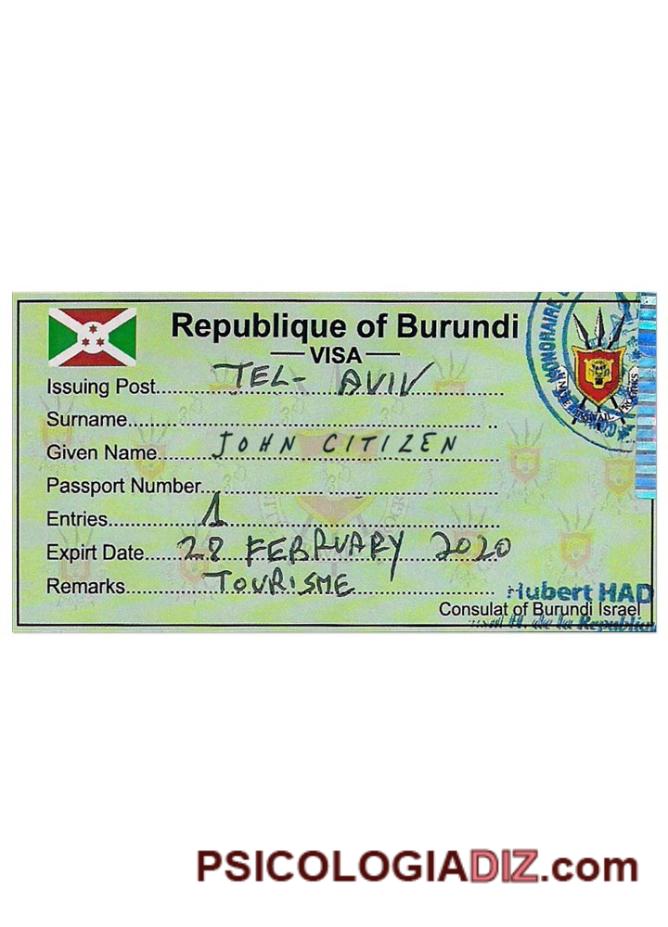 Republique of Burundi
VISA
Issuing Post TEL- AVIV
Surname
Given Name JOHN CITIZEN
Passport Number
Entries 1
Expirt Date 28 FEBRUARY 2020
Remarks TOURISME
Hubert HAD
Consulat of Burundi Israel
de la Republiq
PSICOLOGIADIZ.com